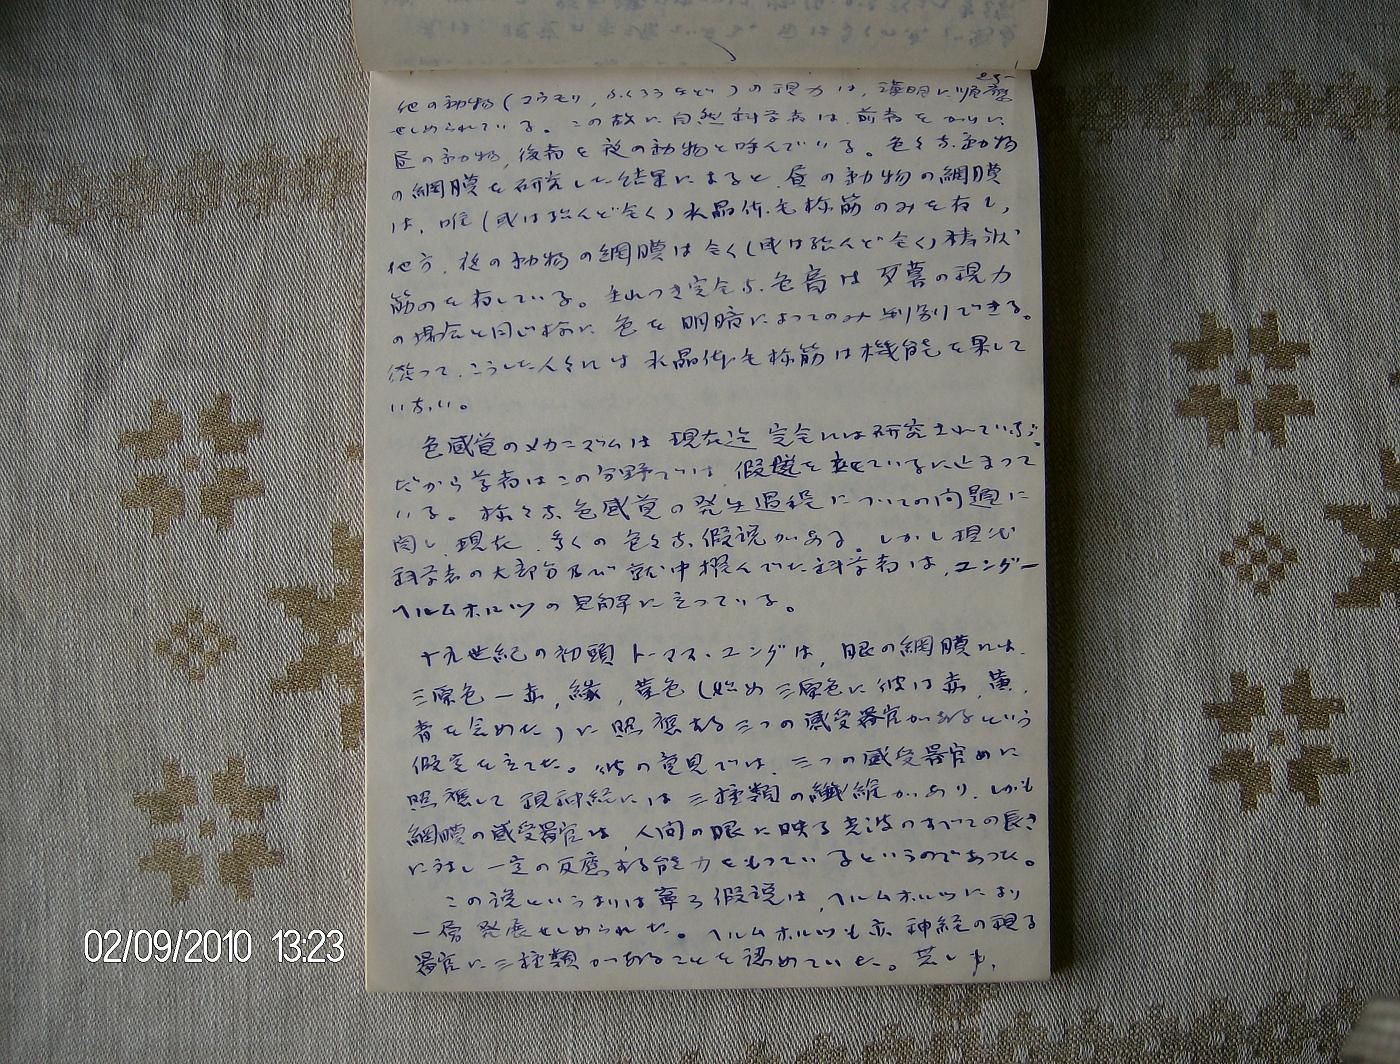 他の動物(コウモリ,ふくろうなど)の視力は,薄明に順應
せしめられている。この故に自然科学者は,前者をかりに
昼の動物,後者を夜の動物と呼んでいる。色々な動物
の網膜を研究した結果によると,昼の動物の網膜
は,唯(或は殆んど全く)水晶体 筋のみを有し,
他方,夜の動物の網膜は全く(或は殆んど全く) 状
筋のを有している。生れつき完全な色盲は 薄暮の視力
の場合と同じ様に 色を明暗によってのみ判別できる。
従って,こうした人々には 水晶体 筋は機能を果して
いない。
色感覚のメカニズムは 現在迄 完全には研究されている
だから学者はこの分野では,假 を立ているに止まって
いる。様々な色感覚の発生過程についての問題に
関し,現在,多くの色々な假説がある。しかし現代
科学者の大部分及び就中擢んでた科学者は,ユングー
ヘルムホルツの見解に立っている。
十九世紀の初頭 トーマス・ユングは,眼の網膜には,
三原色ー赤,緑,菫色(始め三原色に彼は赤,黄,
青を含めた)に照應する三つの感受器官があるという
假定を立てた。彼の意見では,三つの感受器官めに
照應して視神経には三種類の纖維があり,しかも
網膜の感受器官は,人間の眼に映る光波のすべての長さ
に対し一定の反應する能力をもっているというのであった。
この説というよりは寧ろ假説は,ヘルムホルツにより
一層発展せしめられた。ヘルムホルツも亦 神経の視る
器官に三種類があることを認めていた。若しも,
02/09/2010 13:23